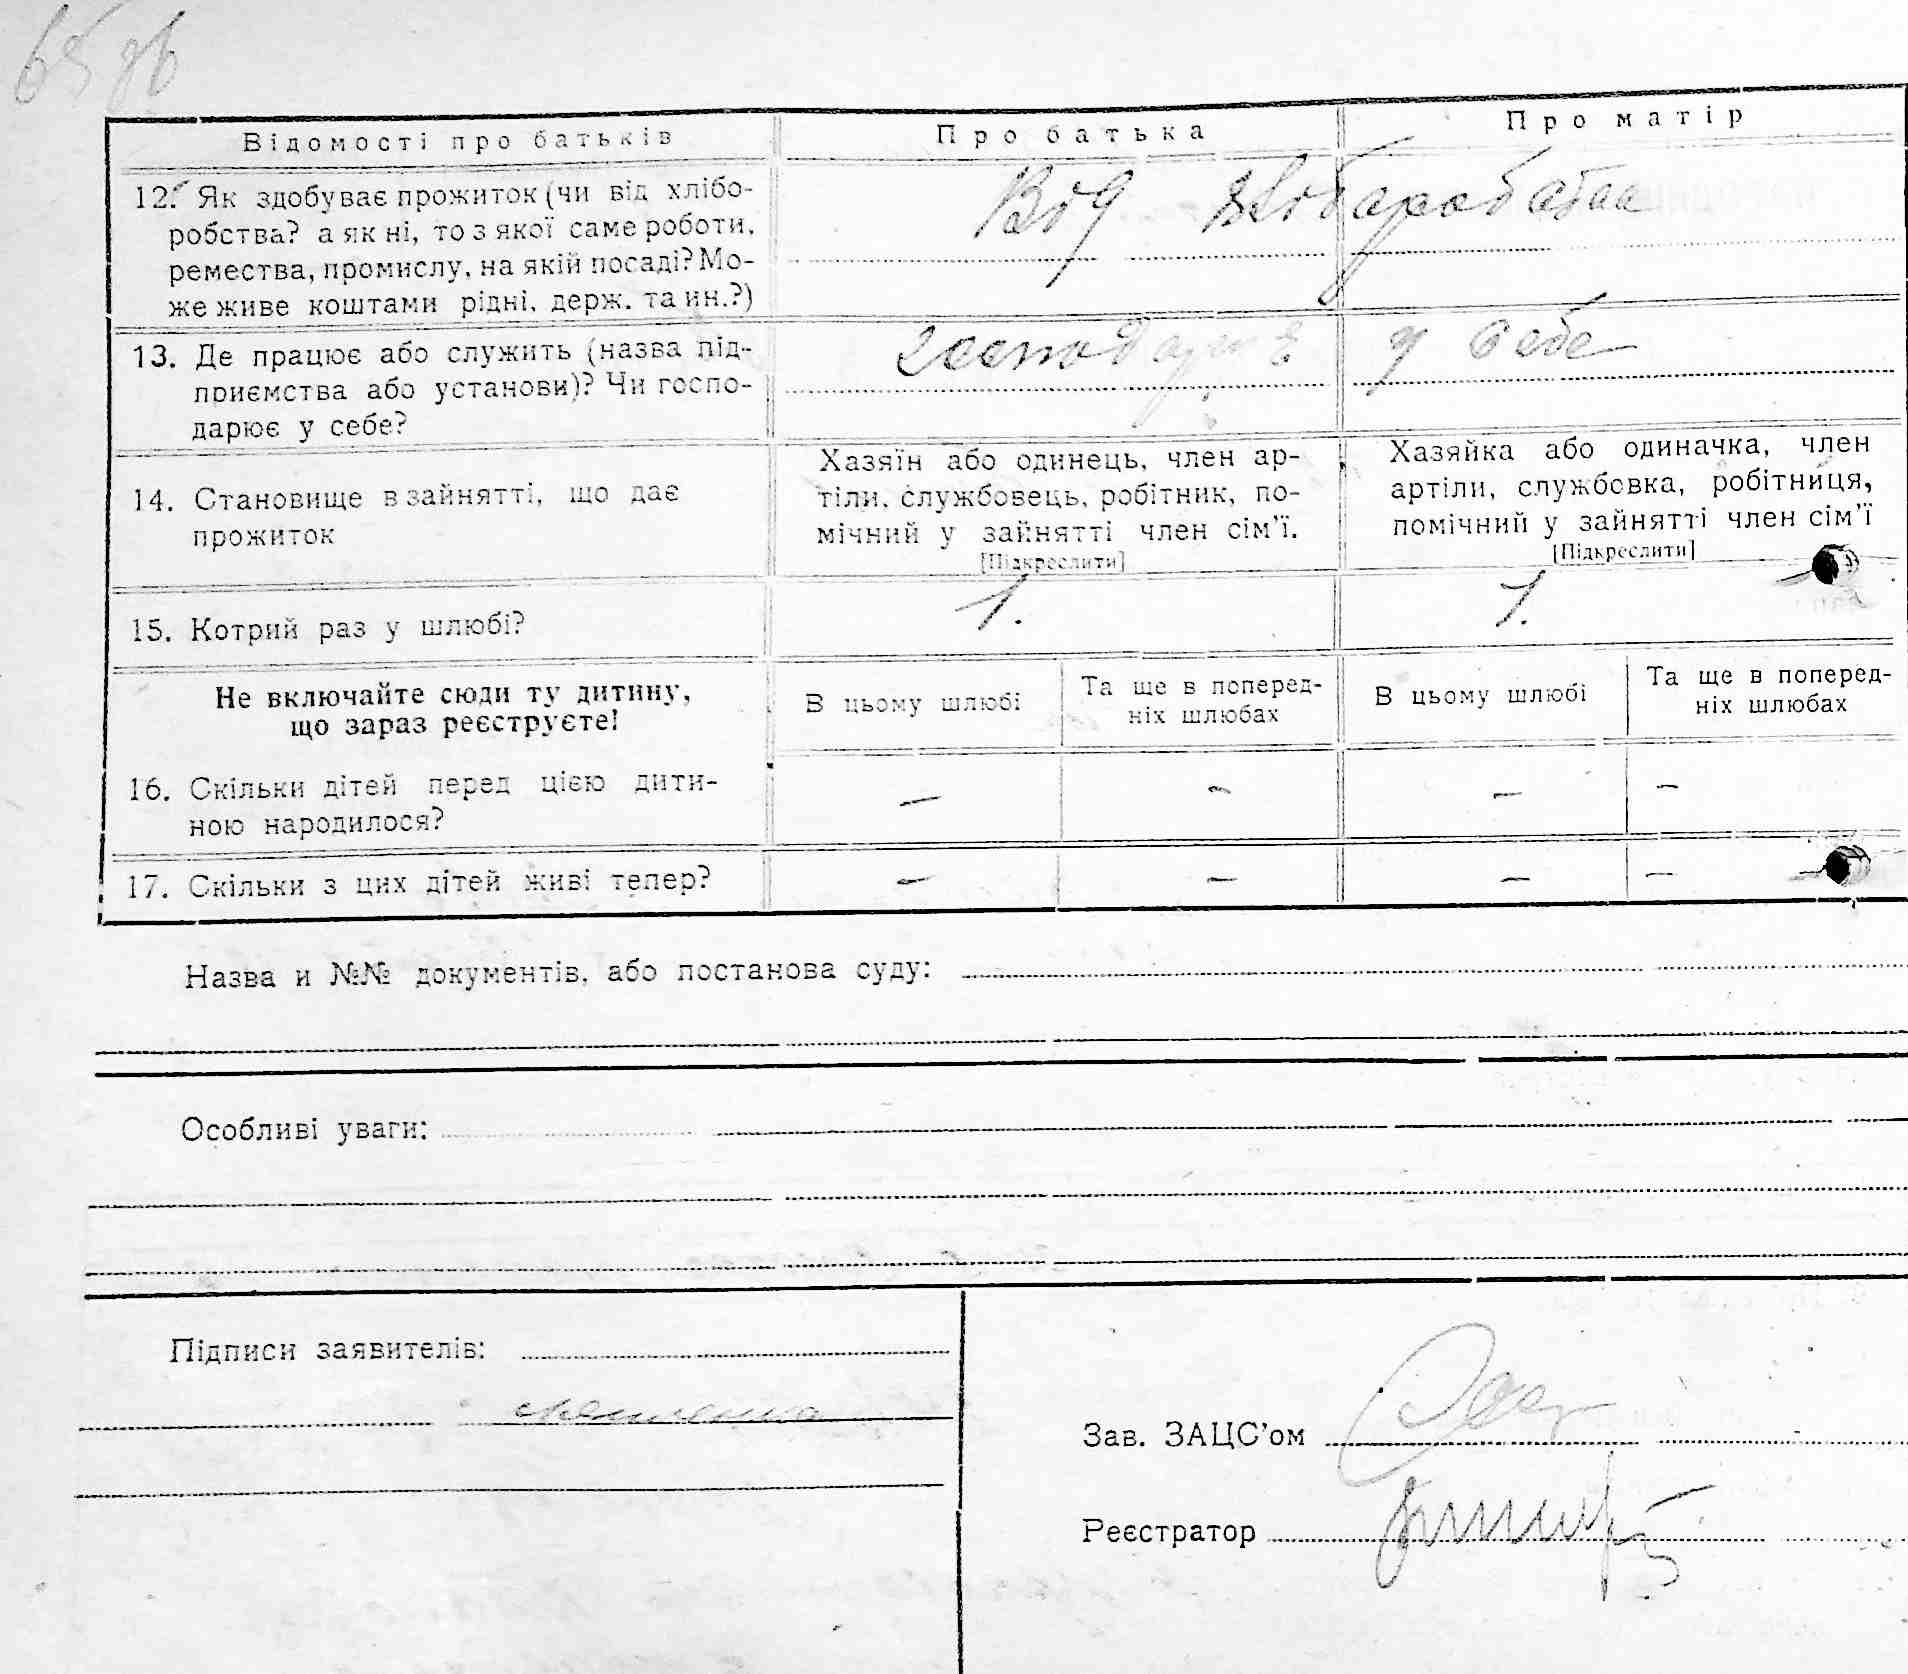 65 зв
Відомості про батьків
Про батька
Про матір
12. Як здобуває прожиток (чи від хлібо-
робства? а як ні, то з якої саме роботи,
ремества, промислу, на якій посаді? Мо-
же живе коштами рідні, держ. та ин.?)
Від
13. Де працює або служить (назва під-
приємства або установи)? Чи госпо-
дарює у себе?
господарює у себе
14. Становище в зайнятті, що дає
прожиток
Хазяїн або одинець, член ар-
тіли, службовець, робітник, по-
мічний у зайнятті член сім'ї.
[Підкреслити]
Хазяйка або одиначка, член
артіли, службовка, робітниця,
помічний у зайнятті член сім'ї
[Підкреслити]
15. Котрий раз у шлюбі?
1.
1.
Не включайте сюди ту дитину,
що зараз реєструєте!
В цьому шлюбі
Та ще в поперед-
ніх шлюбах
В цьому шлюбі
Та ще в поперед-
ніх шлюбах
16. Скільки дітей перед цією дити-
ною народилося?
–
–
–
–
17. Скільки з цих дітей живі тепер?
–
–
–
–
Назва и №№ документів, або постанова суду:
Особливі уваги:
Підписи заявителів:
Зав. ЗАЦС'ом
Реєстратор